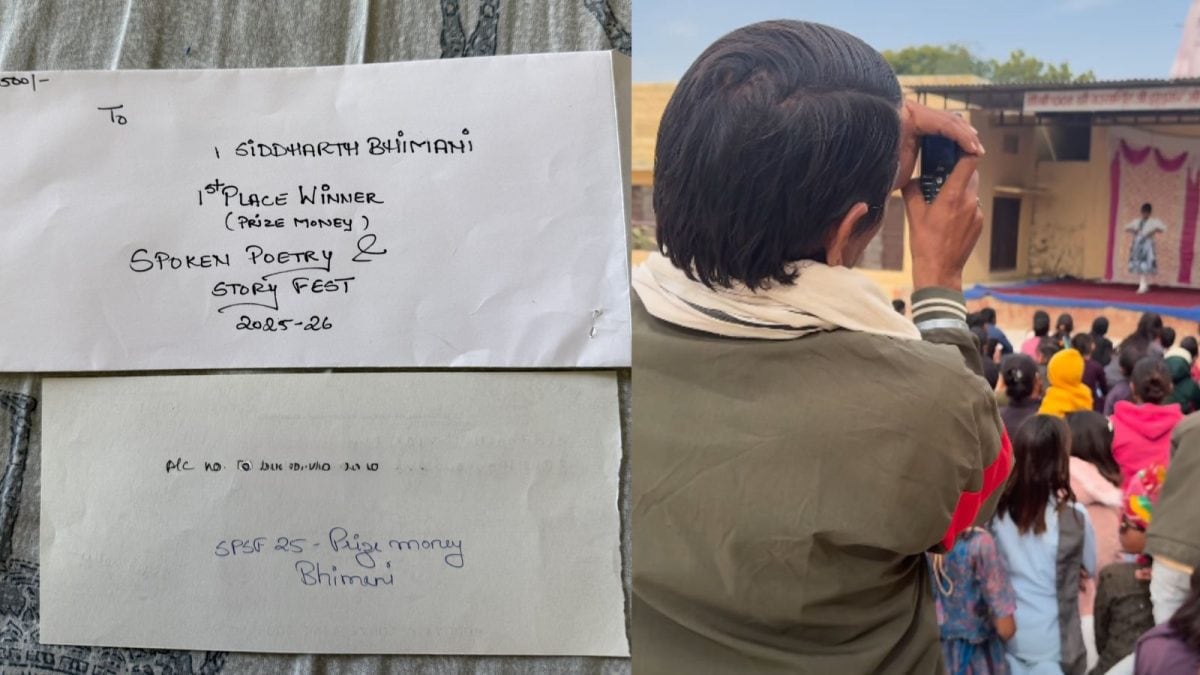 500/-
To
SIDDHARTH BHIMANI
1st PLACE WINNER
(PRIZE MONEY)
SPOKEN POETRY &
STORY FEST
2025-26
A/C no.
SPSF 25 - Prize money
Bhimani